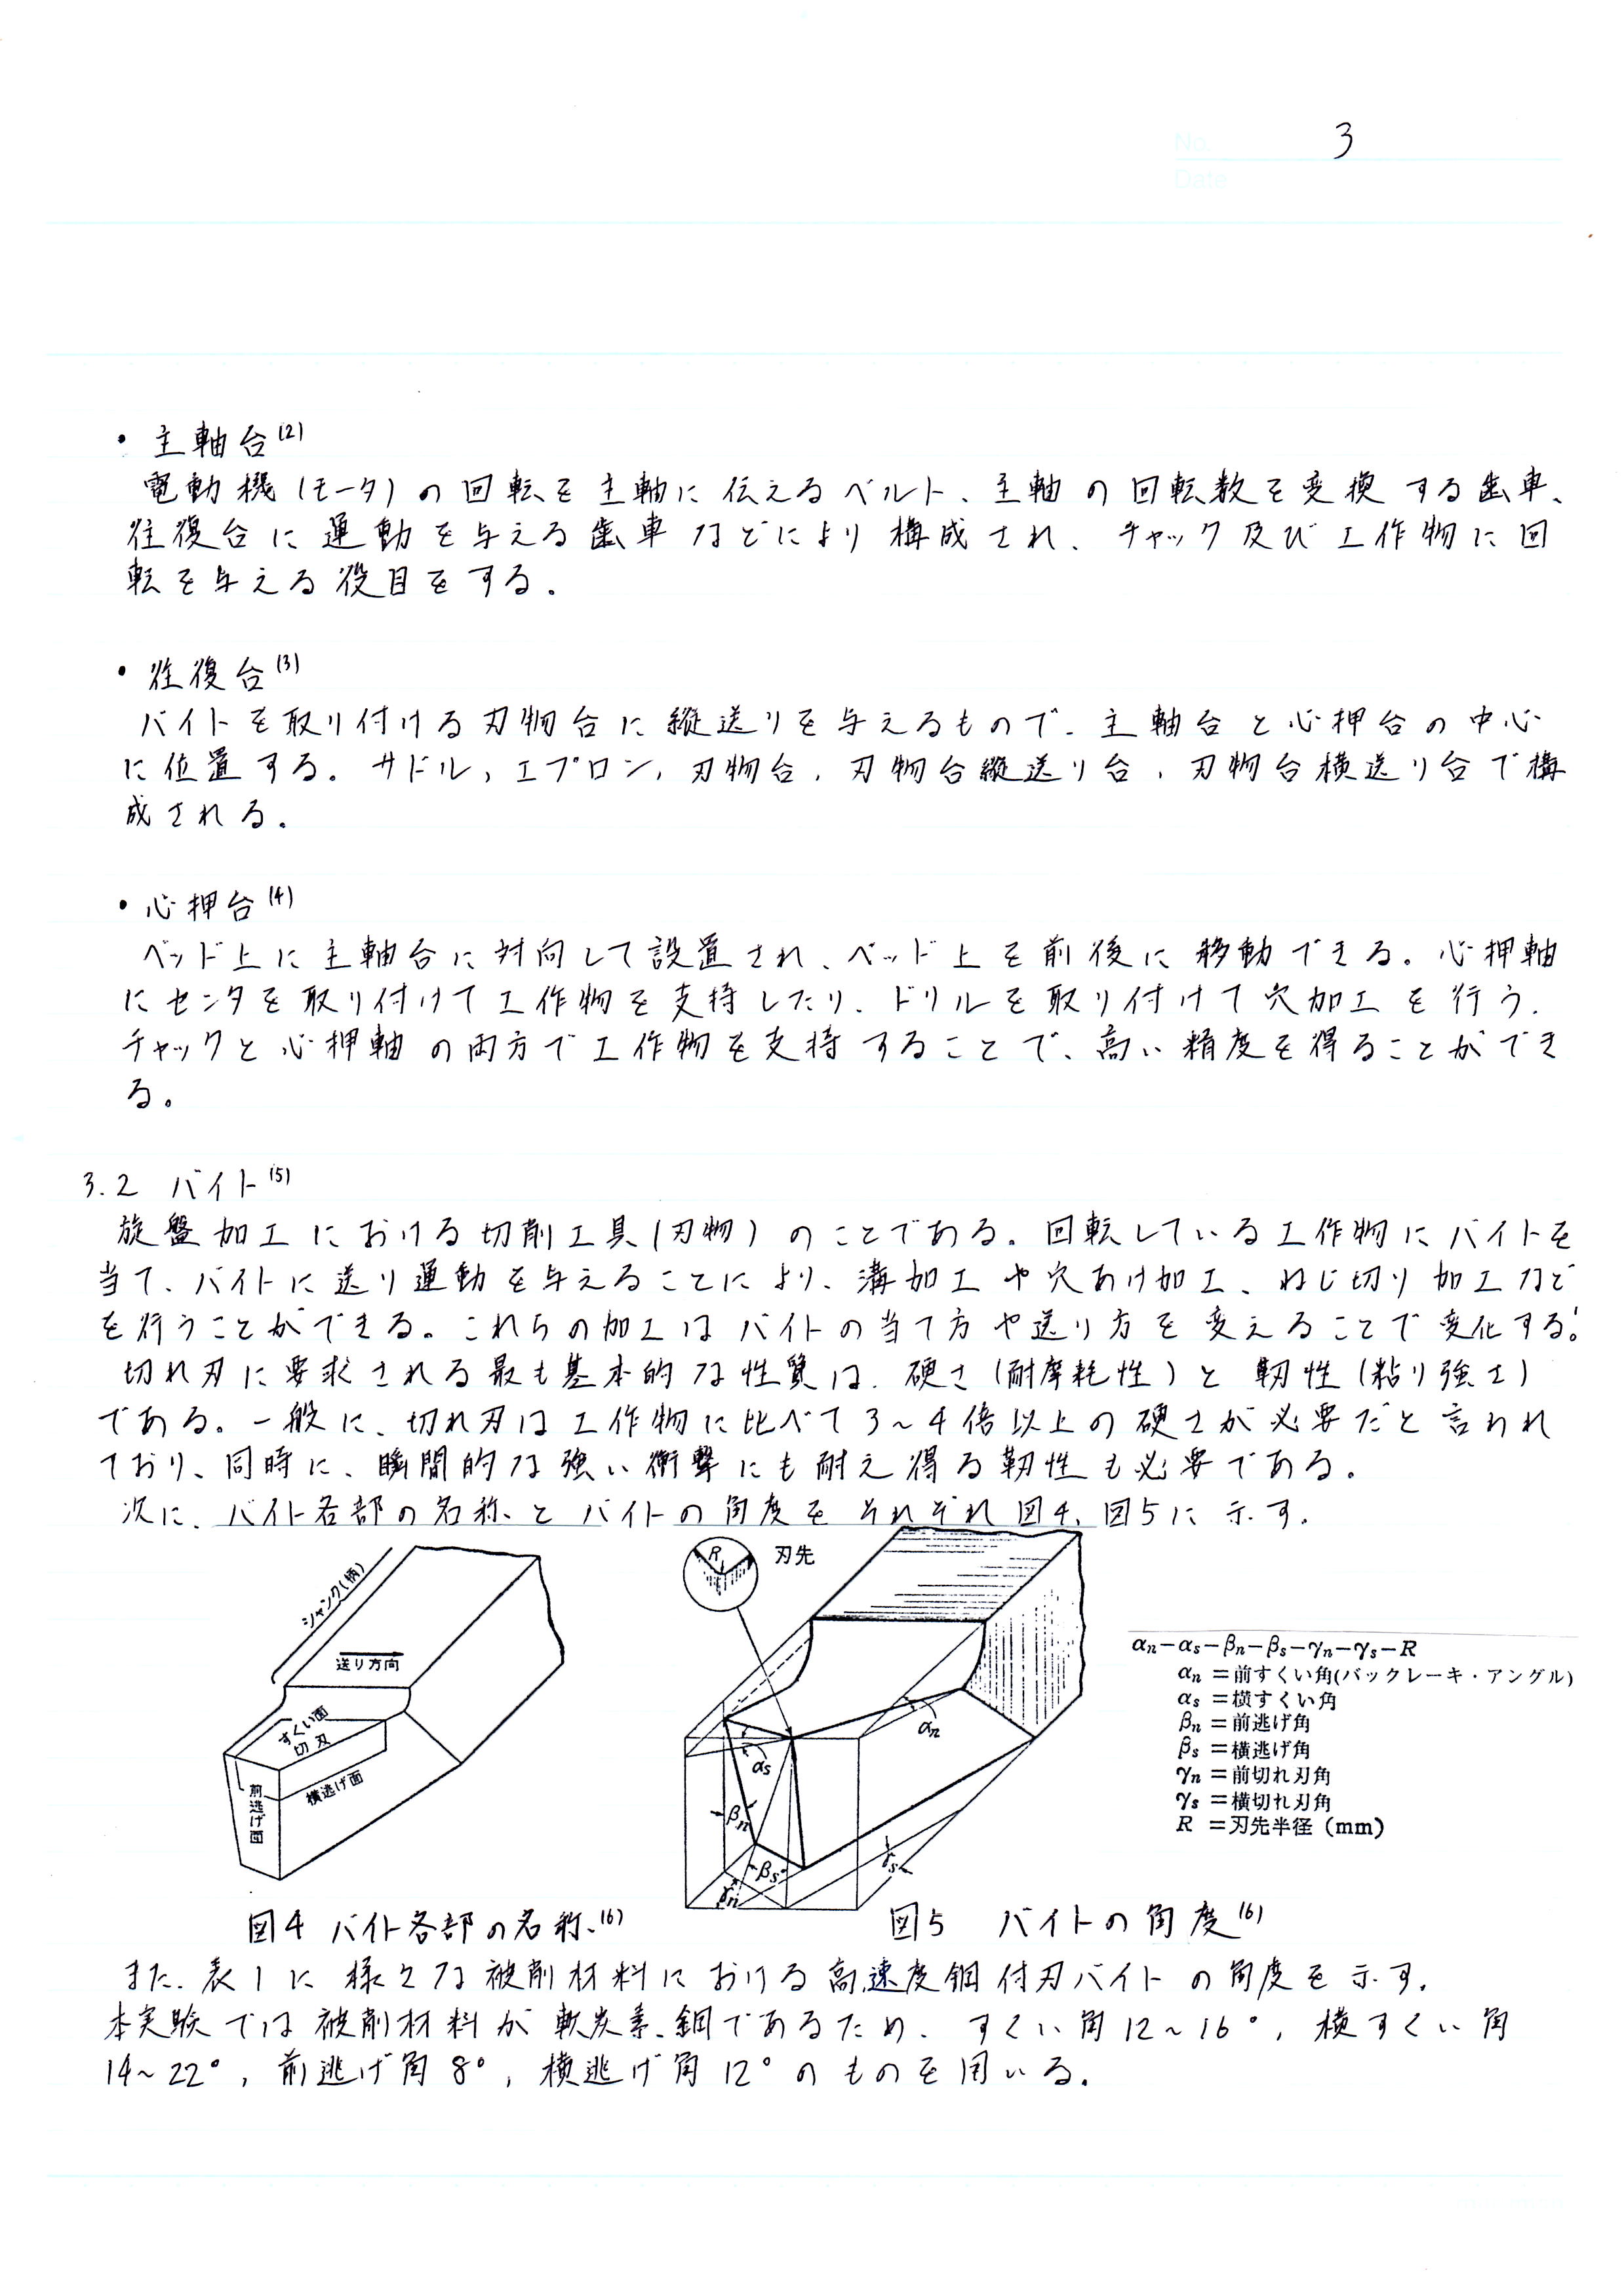 No. 3
Date
・主軸台(2)
電動機(モータ)の回転を主軸に伝えるベルト、主軸の回転数を変換する歯車、
往復台に運動を与える歯車などにより構成され、チャック及び工作物に回
転を与える役目をする。
・往復台(3)
バイトを取り付ける刃物台に縦送りを与えるもので、主軸台と心押台の中心
に位置する。サドル，エプロン，刃物台，刃物台縦送り台，刃物台横送り台で構
成される。
・心押台(4)
ベッド上に主軸台に対向して設置され、ベッド上を前後に移動できる。心押軸
にセンタを取り付けて工作物を支持したり、ドリルを取り付けて穴加工を行う．
チャックと心押軸の両方で工作物を支持することで、高い精度を得ることができ
る。
3.2 バイト(5)
旋盤加工における切削工具(刃物)のことである。回転している工作物にバイトを
当て、バイトに送り運動を与えることにより、溝加工や穴あけ加工、ねじ切り加工など
を行うことができる。これらの加工はバイトの当て方や送り方を変えることで変化する。
切れ刃に要求される最も基本的な性質は、硬さ(耐摩耗性)と靭性(粘り強さ)
である。一般に、切れ刃は工作物に比べて3～4倍以上の硬さが必要だと言われ
ており、同時に、瞬間的な強い衝撃にも耐え得る靭性も必要である。
次に、バイト各部の名称とバイトの角度をそれぞれ図4、図5に示す．
シャンク(柄)
送り方向
すくい面
切刃
横逃げ面
前逃げ面
R
刃先
αn
αs
βn
βs
γn
γs
αn－αs－βn－βs－γn－γs－R
αn＝前すくい角(バックレーキ・アングル)
αs＝横すくい角
βn＝前逃げ角
βs＝横逃げ角
γn＝前切れ刃角
γs＝横切れ刃角
R ＝刃先半径 (mm)
図4 バイト各部の名称(6)
図5 バイトの角度(6)
また、表1に様々な被削材料における高速度鋼付刃バイトの角度を示す．
本実験では被削材料が軟炭素鋼であるため、すくい角12～16°，横すくい角
14～22°，前逃げ角8°，横逃げ角12°のものを用いる．